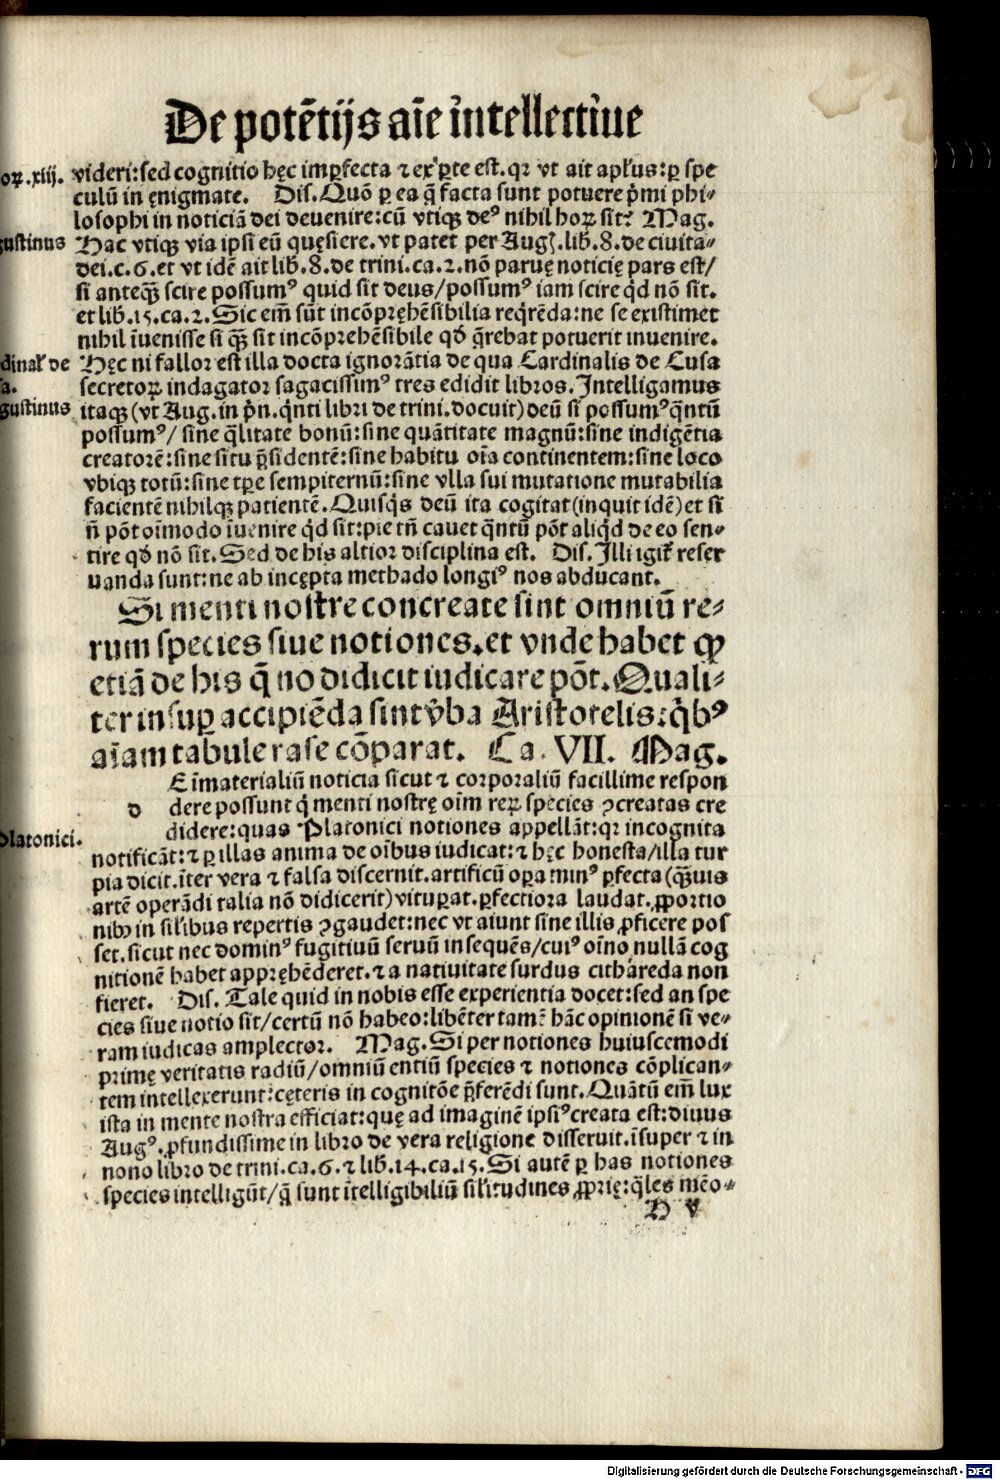 De potētijs aīe intellectiue
oꝝ.xiij. videri:sed cognitio hęc imꝑfecta ⁊ ex ꝑte est.qꝛ vt ait apl̄us:ꝑ spe
culū in ęnigmate. Dis.Quō ꝑ ea q̄ facta sunt potuere p̄mi phi-
losophi in noticiā dei deuenire:cū vtiqꝫ deꝰ nihil hoꝝ sit? Mag.
gustinus Hac vtiqꝫ via ipsi eū quęsiere.vt patet per Aug̃.lib̃.8.de ciuita-
dei.c.6.et vt idē ait lib̃.8.de trini.ca.2.nō paruę noticię pars est/
si anteqꝫ̄ scire possumꝰ quid sit deus/possumꝰ iam scire qd̓ nō sit.
et lib̃.15.ca.2.Sic em̄ sūt incōpręhēsibilia req̓rēda:ne se existimet
nihil īuenisse si qꝫ̄ sit incōprehēsibile qđ q̄rebat potuerit inuenire.
dinal̓ de Hęc ni fallor est illa docta ignorātia de qua Cardinalis de Cusa
sa. secretoꝝ indagator sagacissimꝰ tres edidit libros.Intelligamus
gustinus itaqꝫ (vt Aug.in p̄n.q̓nti libri de trini.docuit)deū si possumꝰ q̄ntū
possumꝰ/ sine q̄litate bonū:sine quātitate magnū:sine indigētia
creatorē:sine situ p̄sidentē:sine habitu oīa continentem:sine loco
vbiqꝫ totū:sine tꝑe sempiternū:sine vlla sui mutatione mutabilia
facientē nihilqꝫ patientē.Quisq̓s deū ita cogitat(inquit idē)et si
n̄ pōt oīmodo īuenire q̓d sit:pie tn̄ cauet q̄ntū pōt aliq̓d de eo sen-
tire qđ nō sit.Sed de his altior disciplina est. Dis.Illi igit̓ reser
uanda sunt:ne ab incępta methado longiꝰ nos abducant.
Si menti nostre concreate sint omniū re-
rum species siue notiones.et vnde habet ꝙ
etiā de his q̄ no didicit iudicare pōt.Quali-
ter insuꝑ accipiēda sint v̓ba Aristotelis:q̓bꝰ
aīam tabule rase cōparat. Ca. VII. Mag.
d E īmaterialiū noticia sicut ⁊ corporaliū facillime respon
dere possunt q̓ menti nostrę oīm reꝝ species ꝯcreatas cre
Platonici. didere:quas Platonici notiones appellāt:qꝛ incognita
notificāt:⁊ ꝑ illas anima de oībus iudicat:⁊ hęc honesta/illa tur
pia dicit.īter vera ⁊ falsa discernit.artificū oꝑa minꝰ ꝑfecta (qꝫ̄uis
artē operādi talia nō didicerit)vituꝑat.ꝑfectiora laudat.ꝓportio
nibꝫ in sil̓ibus repertis ꝯgaudet:nec vt aiunt sine illis ꝓficere pos
set.sicut nec dominꝰ fugitiuū seruū insequēs/cuiꝰ oīno nullā cog
nitionē habet appręhēderet.⁊ a natiuitate surdus cithāreda non
fieret. Dis. Tale quid in nobis esse experientia docet:sed an spe
cies siue notio sit/certū nō habeo:libēter tamē hāc opinionē si ve-
ram iudicas amplector. Mag.Si per notiones huiuscemodi
primę veritatis radiū/omniū entiū species ⁊ notiones cōplican-
tem intellexerunt:cęteris in cognitōe p̄ferēdi sunt.Quātū em̄ lux
ista in mente nostra efficiat:quę ad imaginē ipsiꝰ creata est:diuus
Augꝰ.ꝓfundissime in libro de vera religione disseruit.īsuper ⁊ in
nono libro de trini.ca.6.⁊ lib̃.14.ca.15.Si autē ꝑ has notiones
species intelligūt/q̄ sunt ītelligibiliū sil̓itudines ꝓprię:q̄les mēo-
H v
Digitalisierung gefördert durch die Deutsche Forschungsgemeinschaft - DFG